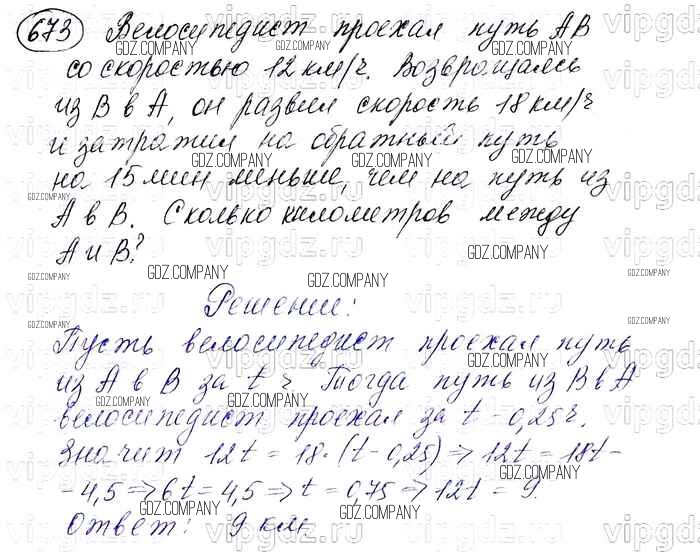 673 Велосипедист проехал путь AB
со скоростью 12 км/ч. Возвращаясь
из B в A, он развил скорость 18 км/ч
и затратил на обратный путь
на 15 мин меньше, чем на путь из
A в B. Сколько километров между
A и B?
Решение:
Пусть велосипедист проехал путь
из A в B за t ч. Тогда путь из B в A
велосипедист проехал за t - 0,25 ч.
Значит 12t = 18·(t-0,25) => 12t = 18t-
-4,5 => 6t = 4,5 => t = 0,75 => 12t = 9.
Ответ: 9 км.
GDZ.COMPANY
vipgdz.ru